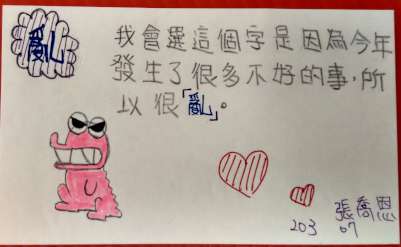 亂
我會選這個字是因為今年
發生了很多不好的事,所
以很「亂」。
張喬恩
203 07